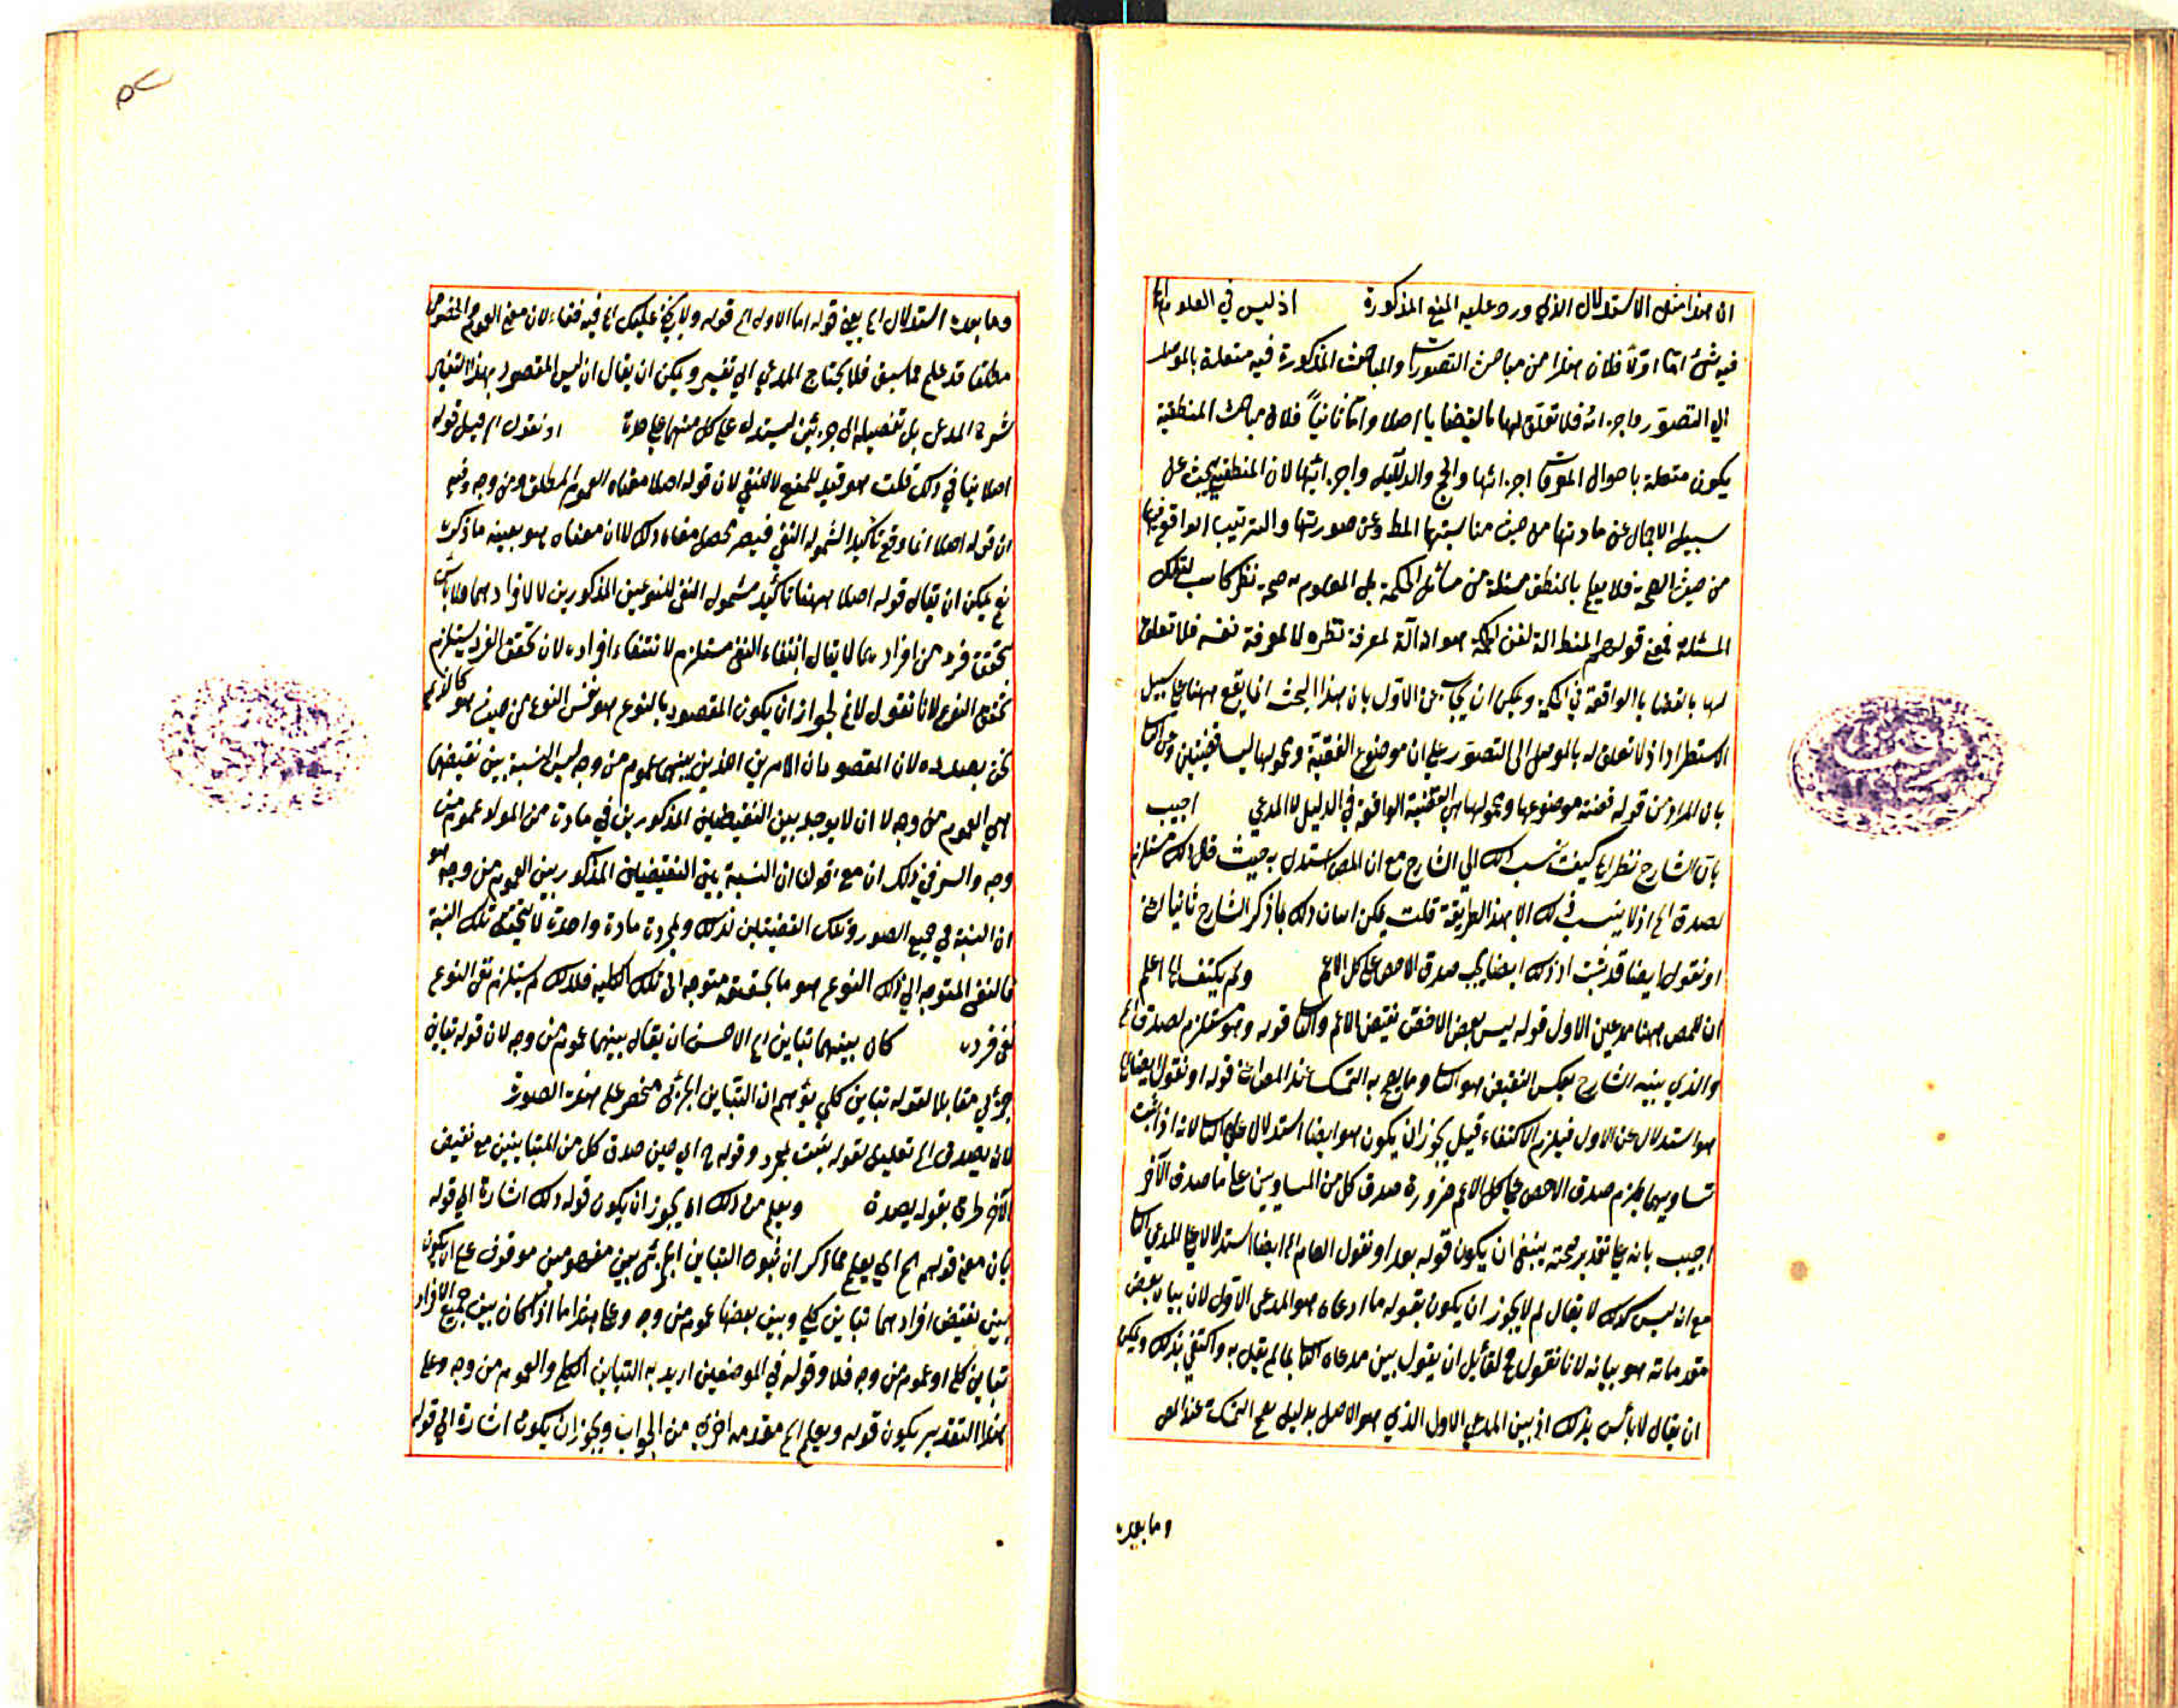 ان هذا مثل الاستدلال الذي ورد عليه المنع المذكورة اذ ليس في العلوم الخ
فيه شئ اما اولا فلان هذا من مباحث التصورات والمباحث المذكورة فيه متعلقة بالموصل
الي التصور واجزائه فلا تعلق لها بالقضايا اصلا واما ثانياً فلان مباحث المنطقية
يكون متعلقة باحوال المعرفات اجزائها والحج والدلايل واجزائها لان المنطقي يبحث على
سبيل الاجمال عن مادتها من حيث مناسبتها المط وعن صورتها والترتيب الواقع فيها
من حيث الصحة فلا يعلم بالمنطق مسئلة من مسائل الحكمة بل المعلوم به صحة نظر كاسب لتلك
المسئلة فمعني قولهم المنطق الة لفن الحكمة هو انه آلة لمعرفة نظره لا لمعرفة نفسه فلا تعلق
لها بالقضايا الواقعة في الحكمة ويمكن ان يجاب عن الاول بان هذا البحث انما يقع ههنا علي سبيل
الاستطراد اذ لا تعلق له بالموصل الى التصور علي ان موضوع القضية ومحمولها ليسا قضيتين وعن الثا
بان المراد من قوله قضية موضوعها ومحمولها هي القضية الواقعة في الدليل لا المدعي اجيب
بان الشارح نظر الخ كيف نسب ذلك الي الشارح مع ان المص استدل به حيث قال ذلك مستلزم
لصدق الخ اذ لا ينسب ذلك الا بهذا الطريقة قلت يمكن اسان ذلك بما ذكر الشارح ثانيا اعني
او نقول ايضا قد ثبت اذ ذلك ايضا يجب صدق الاخص على كل الاعم ولم يكتف الخ اعلم
ان للمص ههنا مدعين الاول قوله ليس بعض الاخص نقيض الاعم والثا قوله وهو مستلزم لصدق الخ
والذي بينه الشارح بعكس النقيض هو الثا وما يصح به التمسك عند المص اعني قوله او نقول ايضا الخ
هو استدلال عن الاول فيلزم الاكتفاء قيل يجوز ان يكون هو ايضا استدلال علي الثا لانه اذا ثبت
تساويهما يلزم صدق الاخص على كل الاعم ضرورة صدق كل من المساويين على ما صدق الآخر
اجيب بانه علي تقدير صحته ينبغي ان يكون قوله بعد او نقول العام الخ ايضا استدلالا علي المدعي الثا
مع انه ليس كذلك لا يقال لم لا يجوز ان يكون بقوله ما ادعاه هو المدعي الاول لان بيان بعض
مقدماته هو بيانه لانا نقول ح لقائل ان يقول بين مدعاه الثا بما لم يقبل به واكتفي بذلك ويمكن
ان يقال لا بأس بذلك اذ بين المدعي الاول الذي هو الاصل بدليل يصح التمسك عند المص
وما بعده
وما بعده استدلال الخ يعني قوله اما الاول الخ قوله ولا يخفي عليك الخ فيه خفاء لان معني العموم والخصوص
مطلقا قد علم مما سبق فلا يحتاج المدعي الي تفسير ويمكن ان يقال ان ليس المقصود بهذا التفسير
شرح المدعي بل تفصيله الى جزئين ليستدل علي كل منهما علي حدة او نقول الخ قيل قوله
اصلا ينافي ذلك قلت هو قيد للمنع لا للنفي لان قوله اصلا معناه العموم المطلق ومن وجه وفيه
ان قوله اصلا انما وقع تأكيدا لشمول النفي فيصير محصل معناه ذلك لا ان معناه هو بعينه ما ذكرت
نعم يمكن ان يقال قوله اصلا ههنا تأكيد شمول النفي للنوعين المذكورين لا لافرادهما ولا بأس
بتحقق فرد من افراده بما لا يقال انتفاء النوع مستلزم لانتفاء افراده لان تحقق الفرد يستلزم
تحقق النوع لانا نقول لا نم لجواز ان يكون المقصود بالنوع هو نفس النوع من حيث هو كالذي
نحن بصدده لان المقصود ان الامرين اللذين بينهما عموم من وجه ليس النسبة بين نقيضهما
هي العموم من وجه لا ان لا يوجد بين النقيضين المذكورين في مادة من المواد عموم من
وجه والسر في ذلك ان معني قولنا ان النسبة بين النقيضين المذكورين العموم من وجه هو
ان النسبة في جميع الصور وتلك القضيتين لذلك ولمجردة مادة واحدة لا يتحقق تلك النسبة
فالنفي المتوجه الي ذلك النوع هو ما بحقيقة متوجه الى تلك الكلية فلذلك لم يستلزم نفي النوع
نفي فرده كان بينهما تباين الخ الاحسن ان يقال بينهما عموم من وجه لان قوله تباين
جزئي مقابلا لقوله تباين كلي يوهم ان التباين الجزئي منحصر على هذه الصورة
لان يصدق الخ تعليل لقوله يثبت لمجرد وقوله ح اي حين صدق كل من المتباينين مع نقيض
الآخر ظرف لقوله يصدق ويعلم من ذلك الخ يجوز ان يكون قوله ذلك اشارة الي قوله
بان معني قولهم الخ اي يعلم مما ذكر ان ثبوت التباين الجزئي بين مفهومين موقوف علي ان يكون
بين نقيض افرادهما تباين كلي وبين بعضها عموم من وجه وعلي هذا اما اذا كان بين جميع الافراد
تباين كلي او عموم من وجه فلا وقوله في الموضعين اريد به التباين الكلي والعموم من وجه وعلي
هذا التقدير يكون قوله ويعلم الخ مقدمه اخري من الجواب ويجوز ان يكون اشارة الي قوله